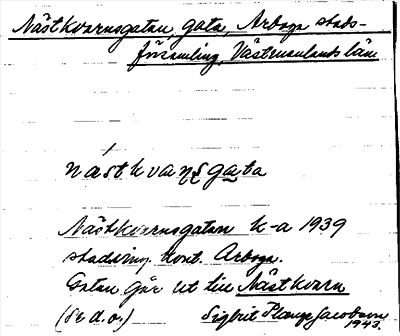 Nästkvarnsgatan, gata, Arboga stads-
församling, Västmanlands län
nástkvaṇşgata
Nästkvarnsgatan k-a 1939
stadsing. kont. Arboga.
Gatan går ut till Nästkvarn
(se d.o.) Sigbrit Plænge Jacobson
1943.